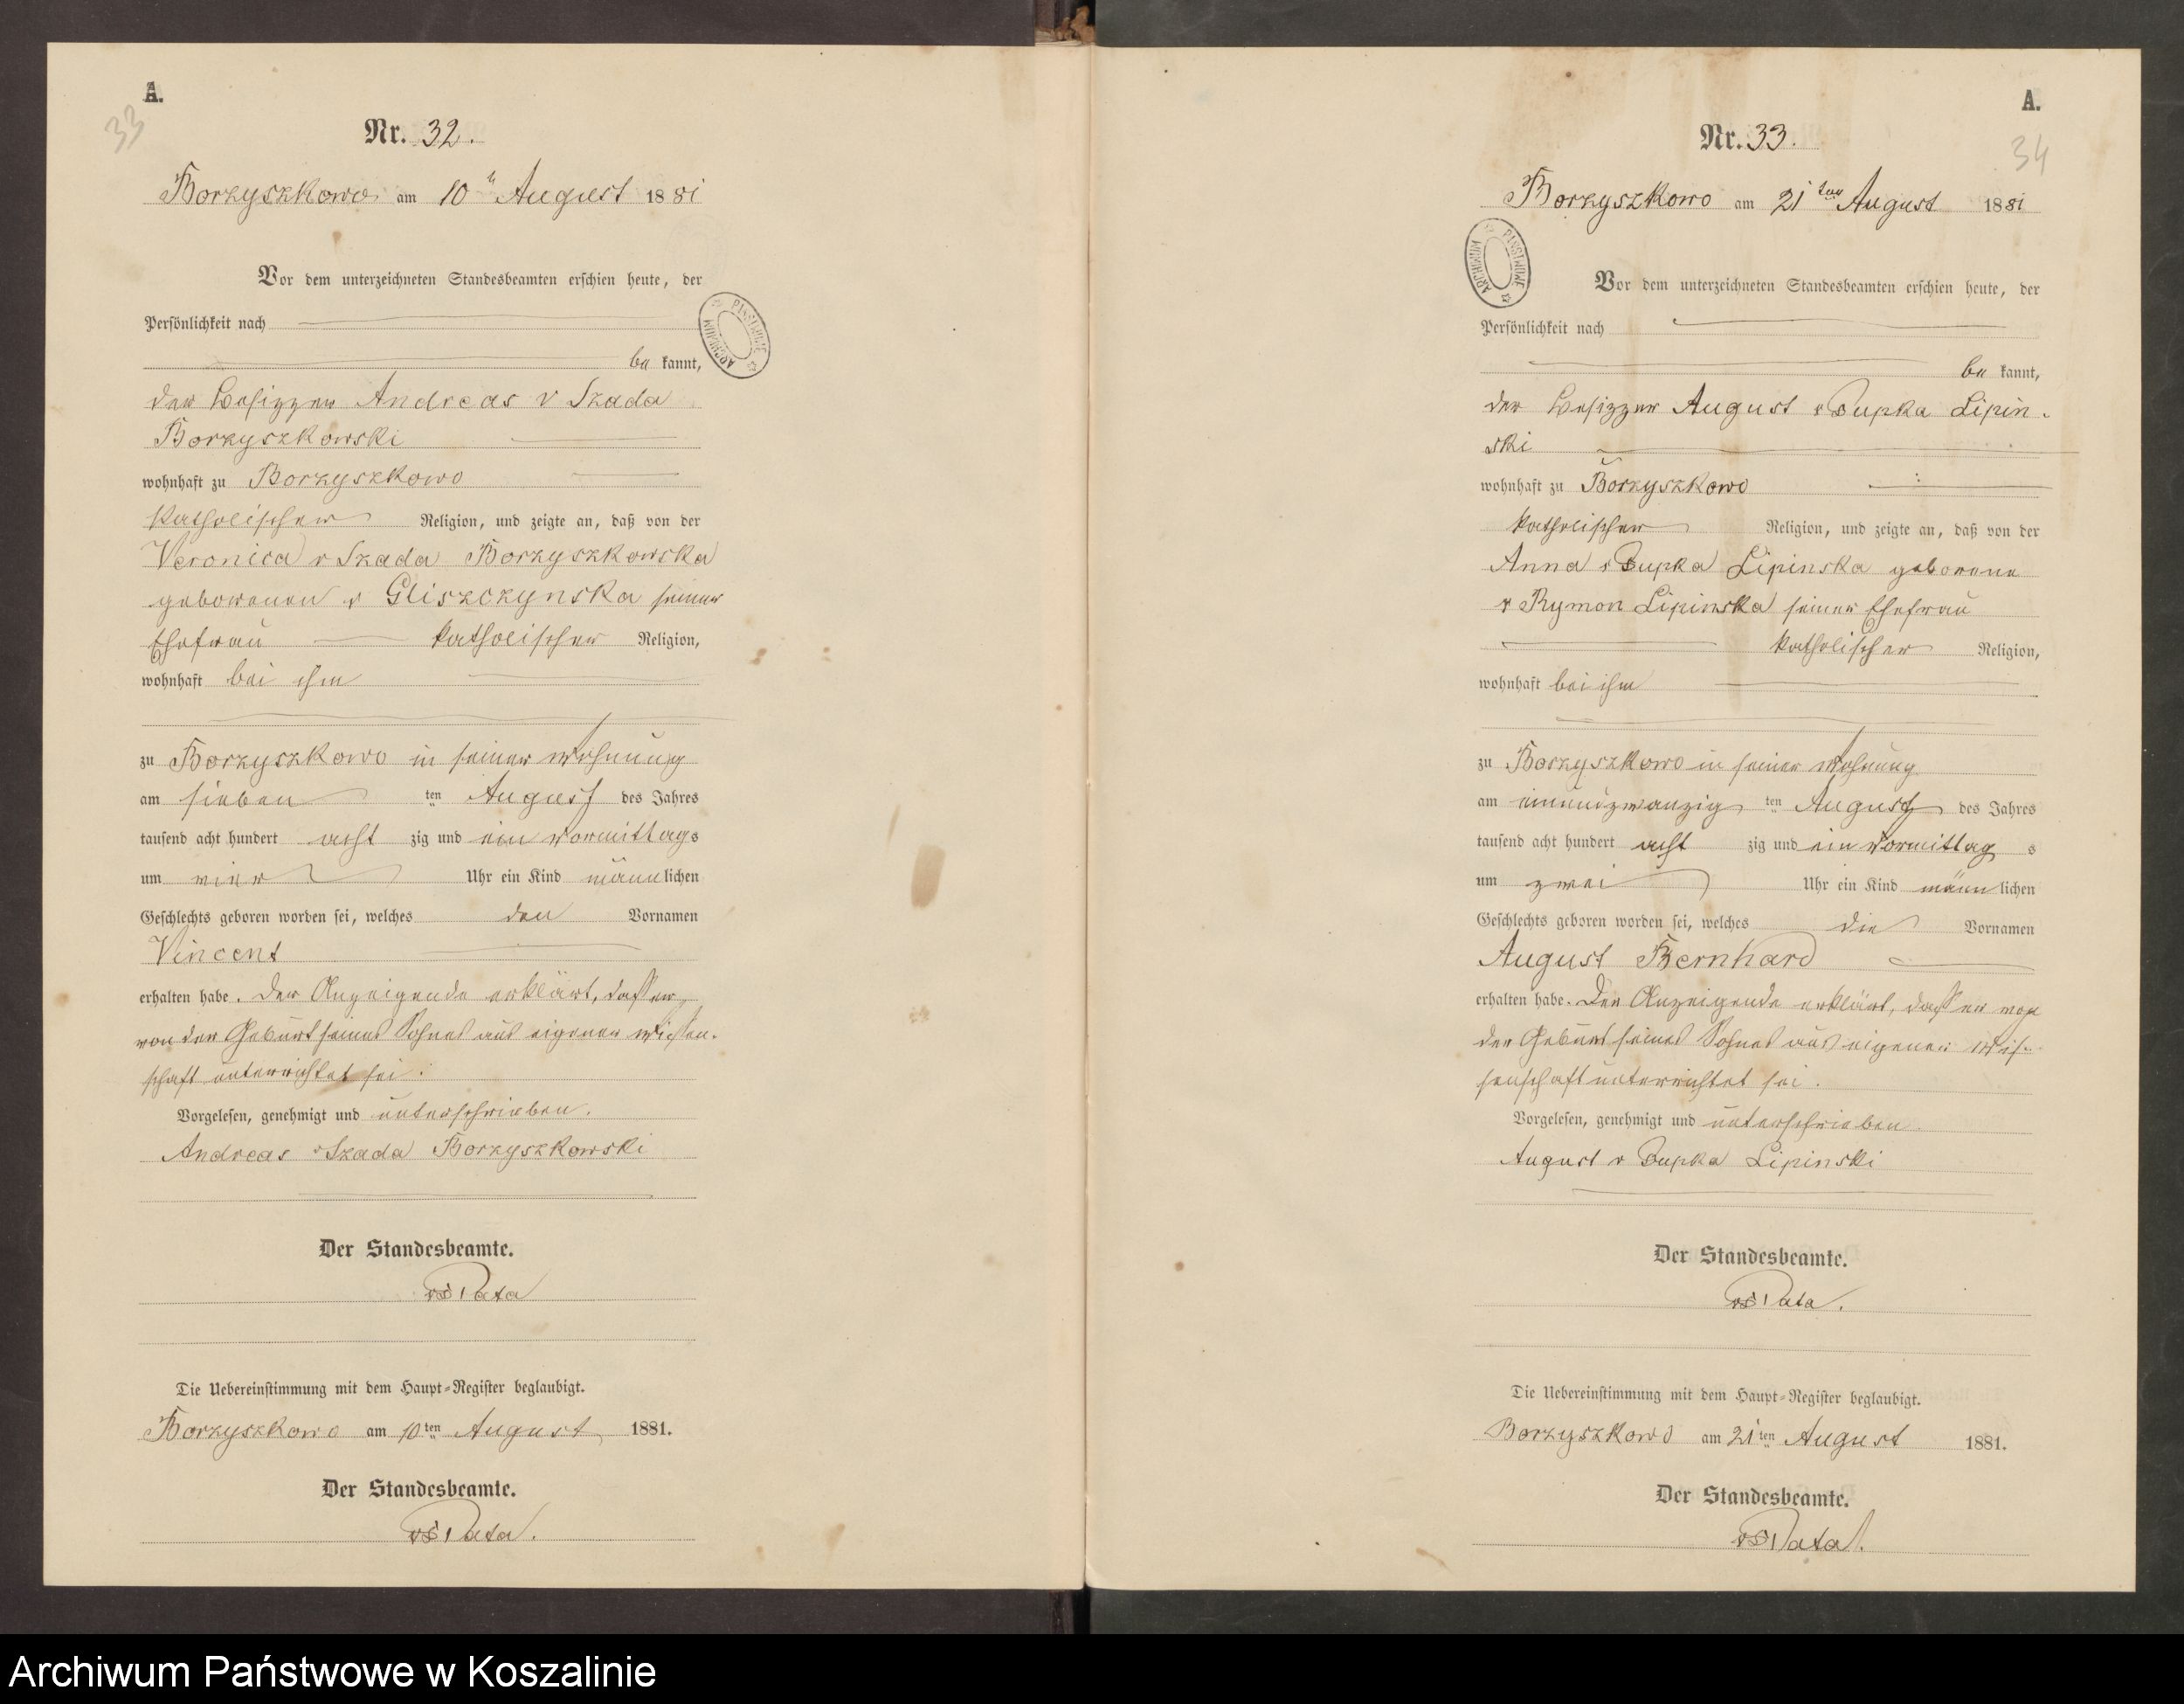 A.
33
Nr. 32.
Borzyszkowo am 10 ten August 1881
Vor dem unterzeichneten Standesbeamten erschien heute, der
Persönlichkeit nach
be kannt,
der Besitzer Andreas v Szada
Borzyszkowski
wohnhaft zu Borzyszkowo
katholischer Religion, und zeigte an, daß von der
Veronica v Szada Borzyszkowska
geborenen v Gliszczynska seiner
Ehefrau katholischer Religion,
wohnhaft bei ihm
zu Borzyszkowo in seiner Wohnung
am sieben ten August des Jahres
tausend acht hundert acht zig und ein Vormittags
um vier Uhr ein Kind männlichen
Geschlechts geboren worden sei, welches den Vornamen
Vincent
erhalten habe. Der Anzeigende erklärt, daß er
von der Geburt seines Sohnes aus eigener Wissen-
schaft unterrichtet sei.
Vorgelesen, genehmigt und unterschrieben.
Andreas v Szada Borzyszkowski
Der Standesbeamte.
Pata
Die Uebereinstimmung mit dem Haupt-Register beglaubigt.
Borzyszkowo am 10ten August 1881.
Der Standesbeamte.
Pata.
A.
34
Nr. 33.
Borzyszkowo am 21 ten August 1881
ARCHIWUM PAŃSTWOWE
Vor dem unterzeichneten Standesbeamten erschien heute, der
Persönlichkeit nach
be kannt,
der Besitzer August v Bupka Lipin-
ski
wohnhaft zu Borzyszkowo
katholischer Religion, und zeigte an, daß von der
Anna v Bupka Lipinska geborene
v Rymon Lipinska seiner Ehefrau
katholischer Religion,
wohnhaft bei ihm
zu Borzyszkowo in seiner Wohnung
am einundzwanzig ten August des Jahres
tausend acht hundert acht zig und ein Vormittag s
um zwei Uhr ein Kind männ lichen
Geschlechts geboren worden sei, welches die Vornamen
August Bernhard
erhalten habe. Der Anzeigende erklärt, daß er von
der Geburt seines Sohnes aus eigener Wis-
senschaft unterrichtet sei.
Vorgelesen, genehmigt und unterschrieben.
August v Bupka Lipinski
Der Standesbeamte.
Pata.
Die Uebereinstimmung mit dem Haupt-Register beglaubigt.
Borzyszkowo am 21ten August 1881.
Der Standesbeamte.
Pata.
Archiwum Państwowe w Koszalinie